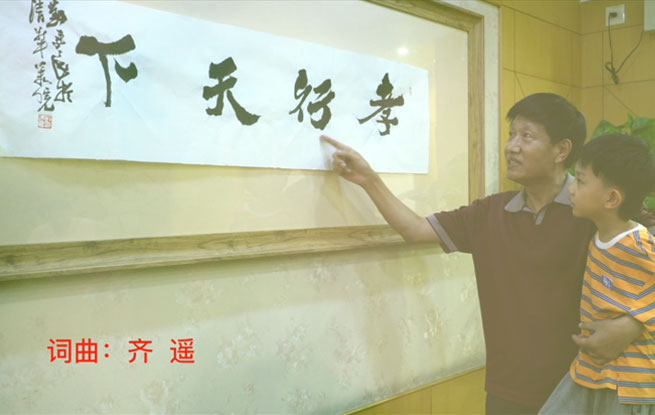 孝行天下
词曲：齐 遥